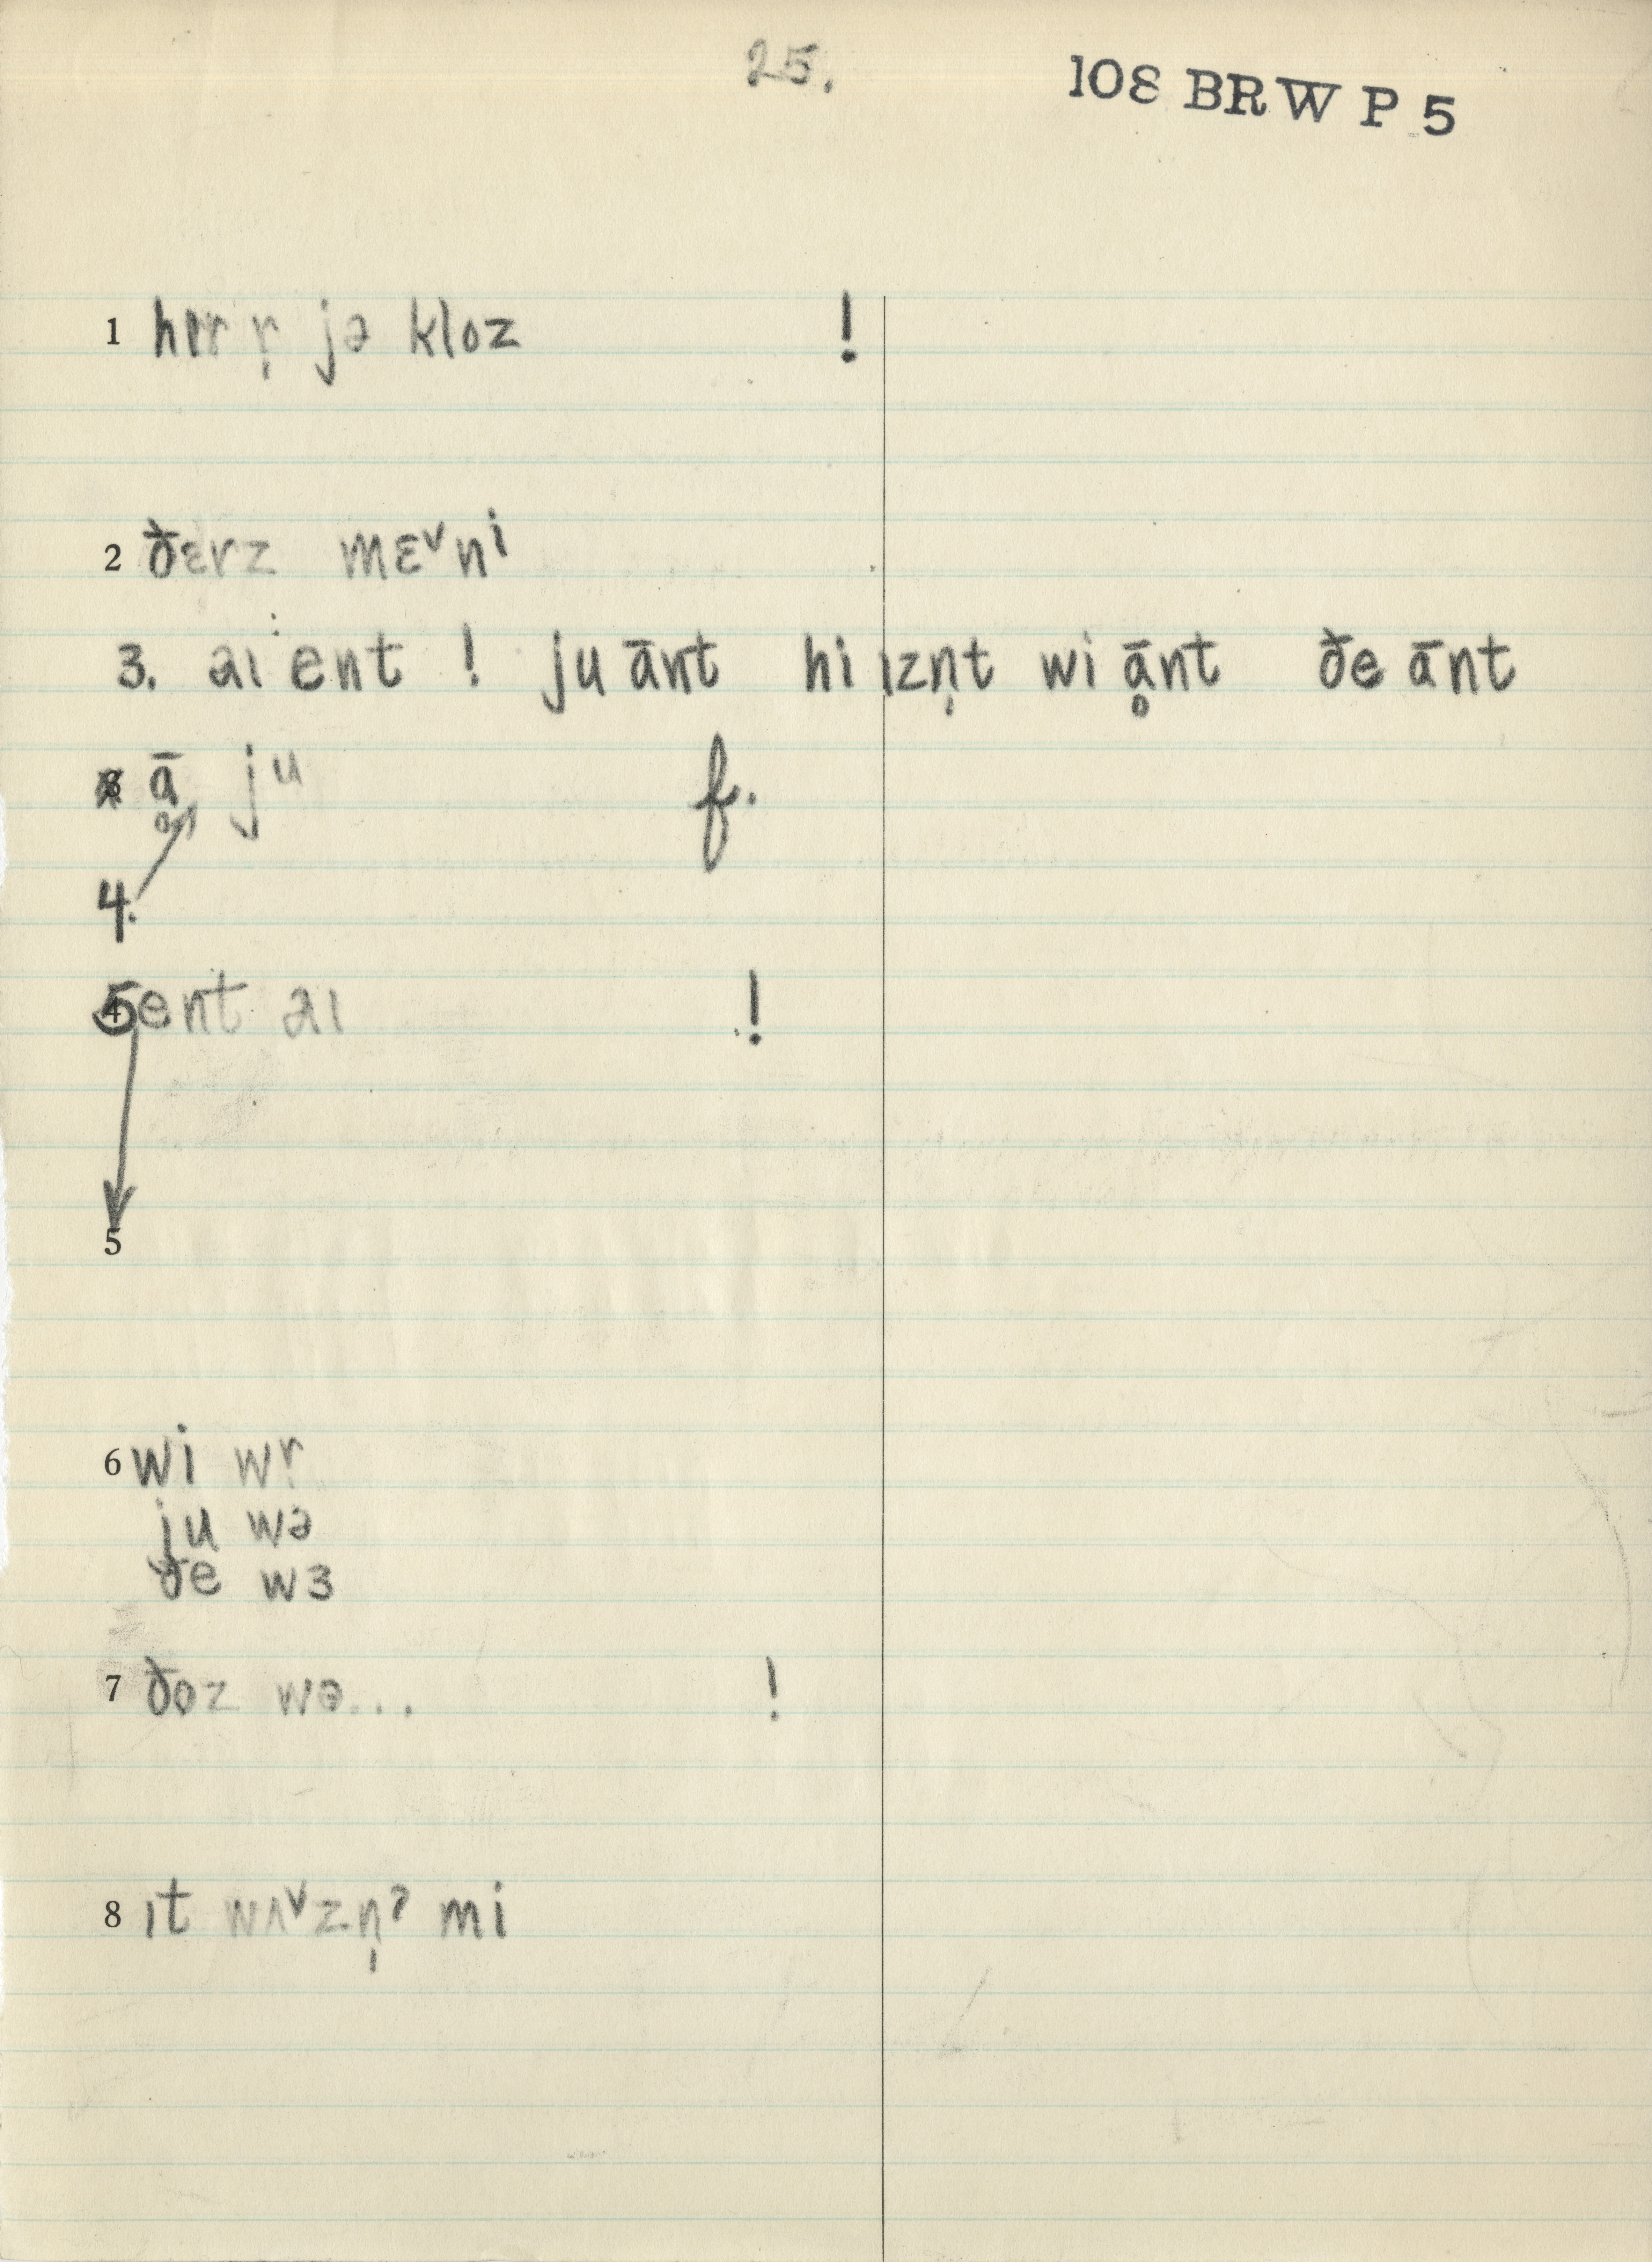 25.
108 BRW P 5
1 hɪr r̩ jə kloz !
2 ðɛrz mɛ˅ni
3. aɪ ent ! ju ānt hi ɪzn̩t wi ḁ̄nt ðe ānt
ḁ̄ ju f.
4.
5 ent aɪ !
5
6 wi wr̩
ju wə
ðe wɜ
7 ðoz wə... !
8 ɪt wʌ˅zn̩ˀ mi